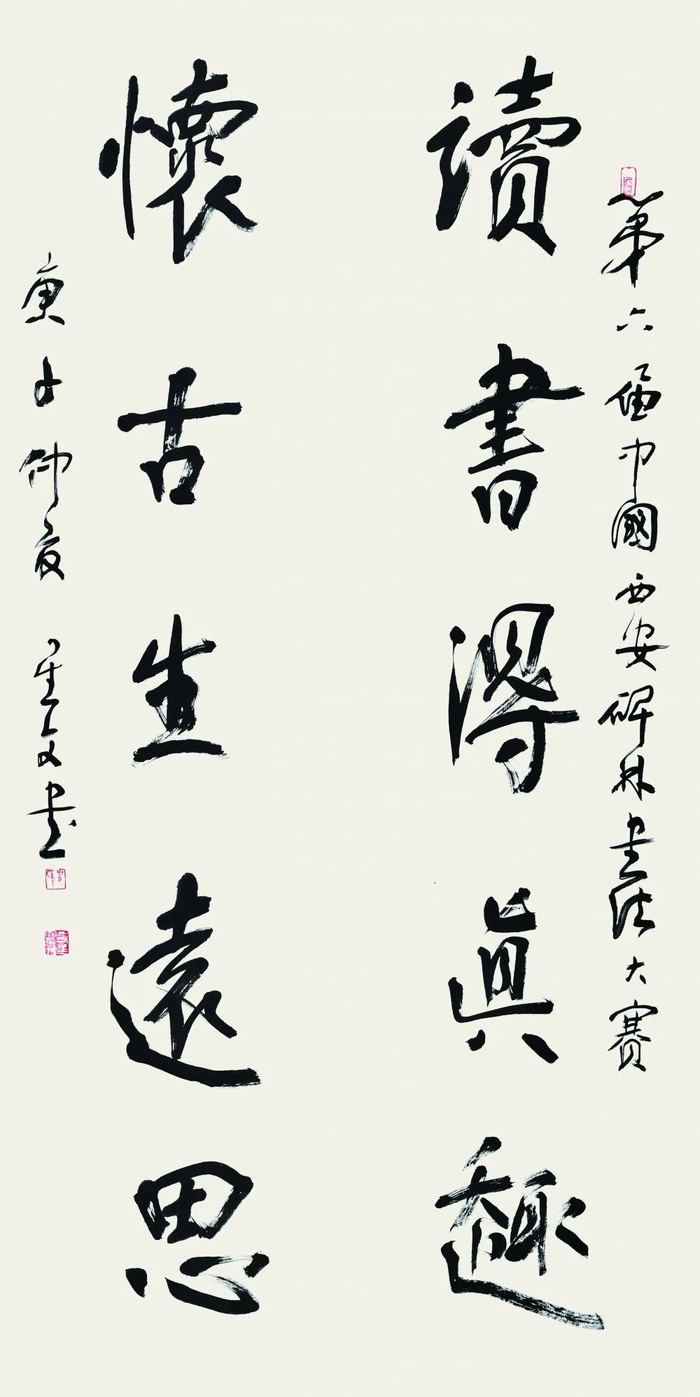 第六届中國西安碑林书法大賽
讀書得眞趣
懷古生遠思
庚子仲夏 星文书